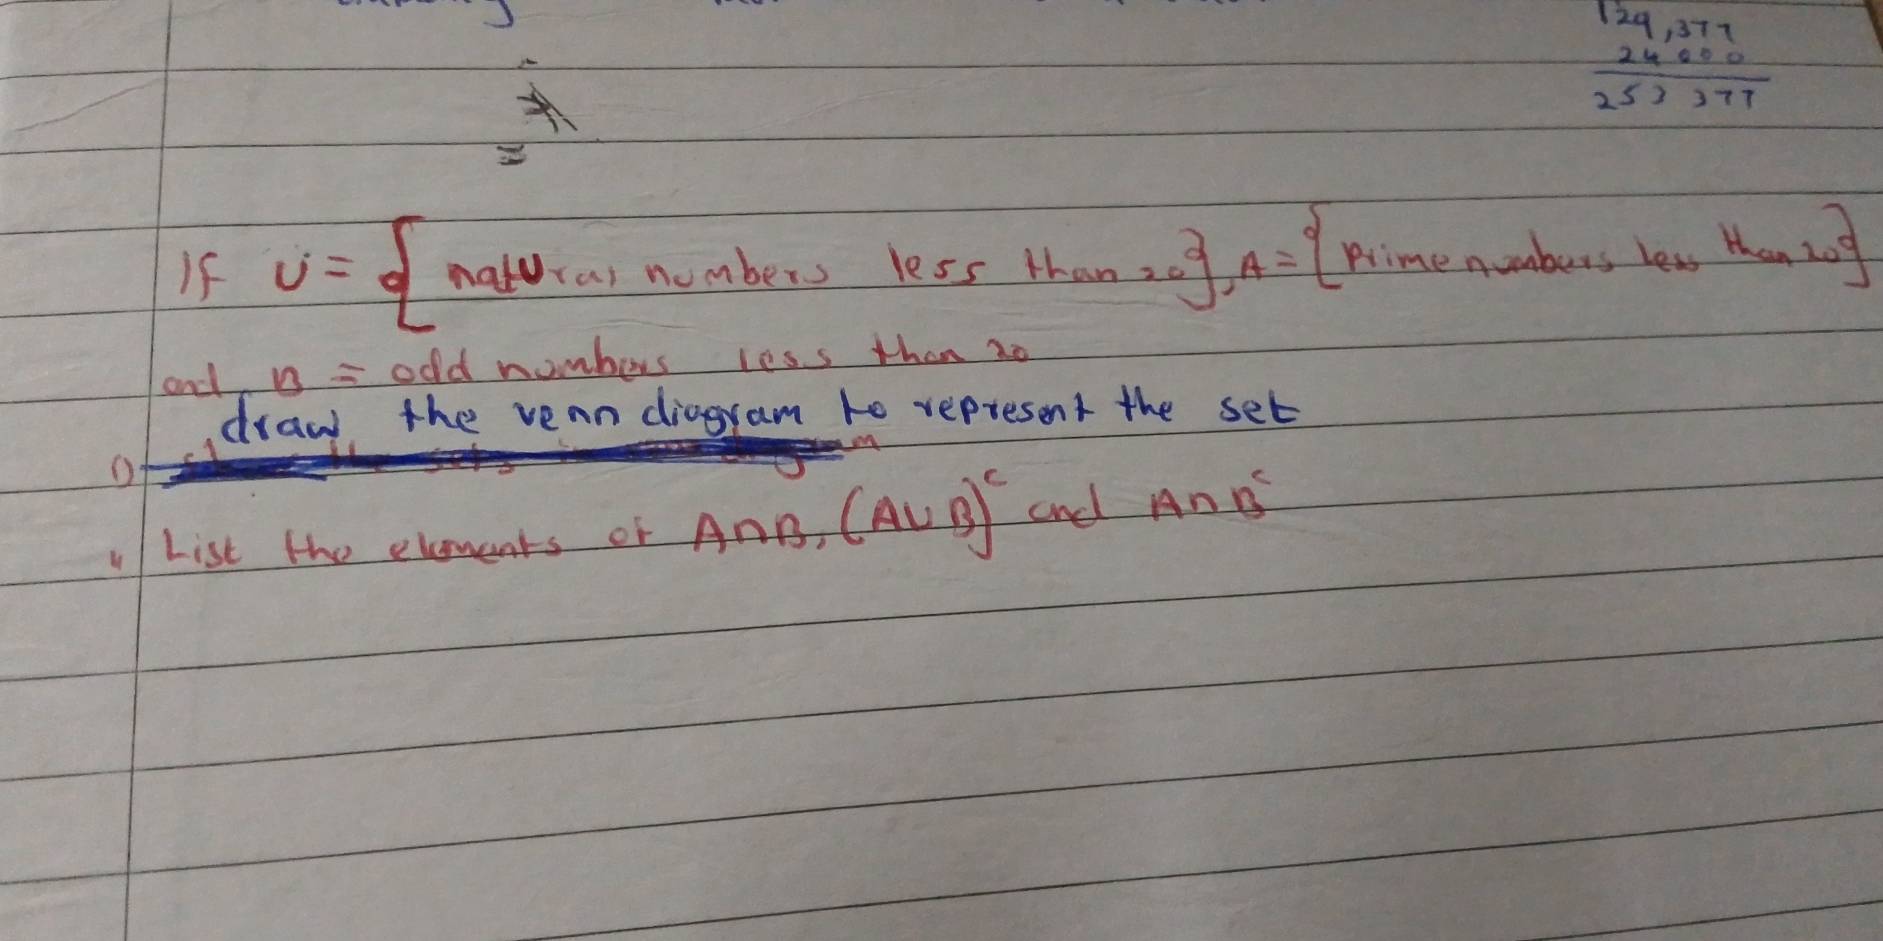 129,377
24000
253 377
=
If U = { natural numbers less than 20}, A = {Prime numbers less than 20}
and B = odd numbers less than 20
draw the venn diagram to represent the set
i)
ii List the elements of A∩B, (A∪B)ᶜ and A∩Bᶜ